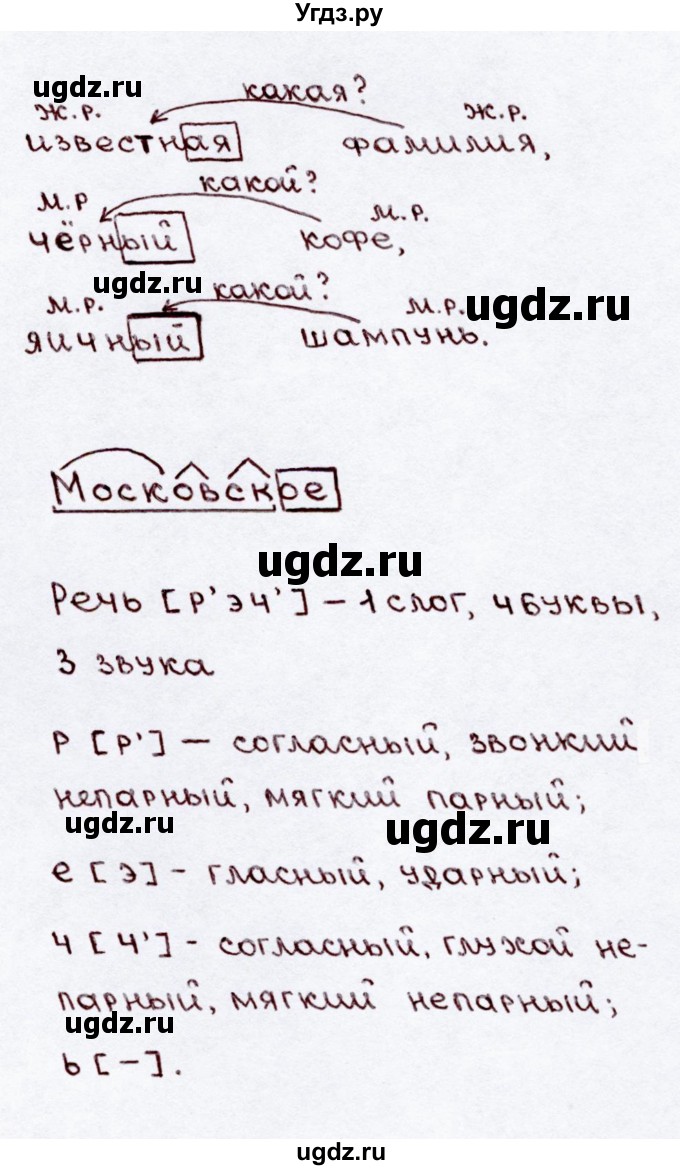 Угдз.ру
ugdz.ru
какая?
ж.р. ж.р.
известная фамилия,
какой?
м.р м.р.
чёрный кофе,
ugdz.ru
какой?
ugdz.ru
м.р. м.р.
яичный шампунь.
Московское
ugdz.ru
Речь [р'эч'] – 1 слог, 4 буквы,
3 звука
р [р'] – согласный, звонкий
непарный, мягкий парный;
ugdz.ru
ugdz.ru
е [э] - гласный, ударный;
ч [ч'] - согласный, глухой не-
парный, мягкий непарный;
ugdz.ru
ь [–].
ugdz.ru